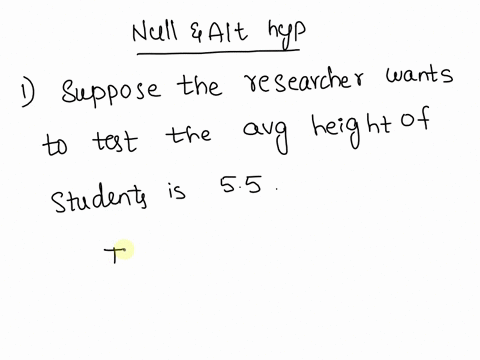 Null & Alt hyp
1) Suppose the researcher wants
to test the avg height of
Students is 5.5.
T